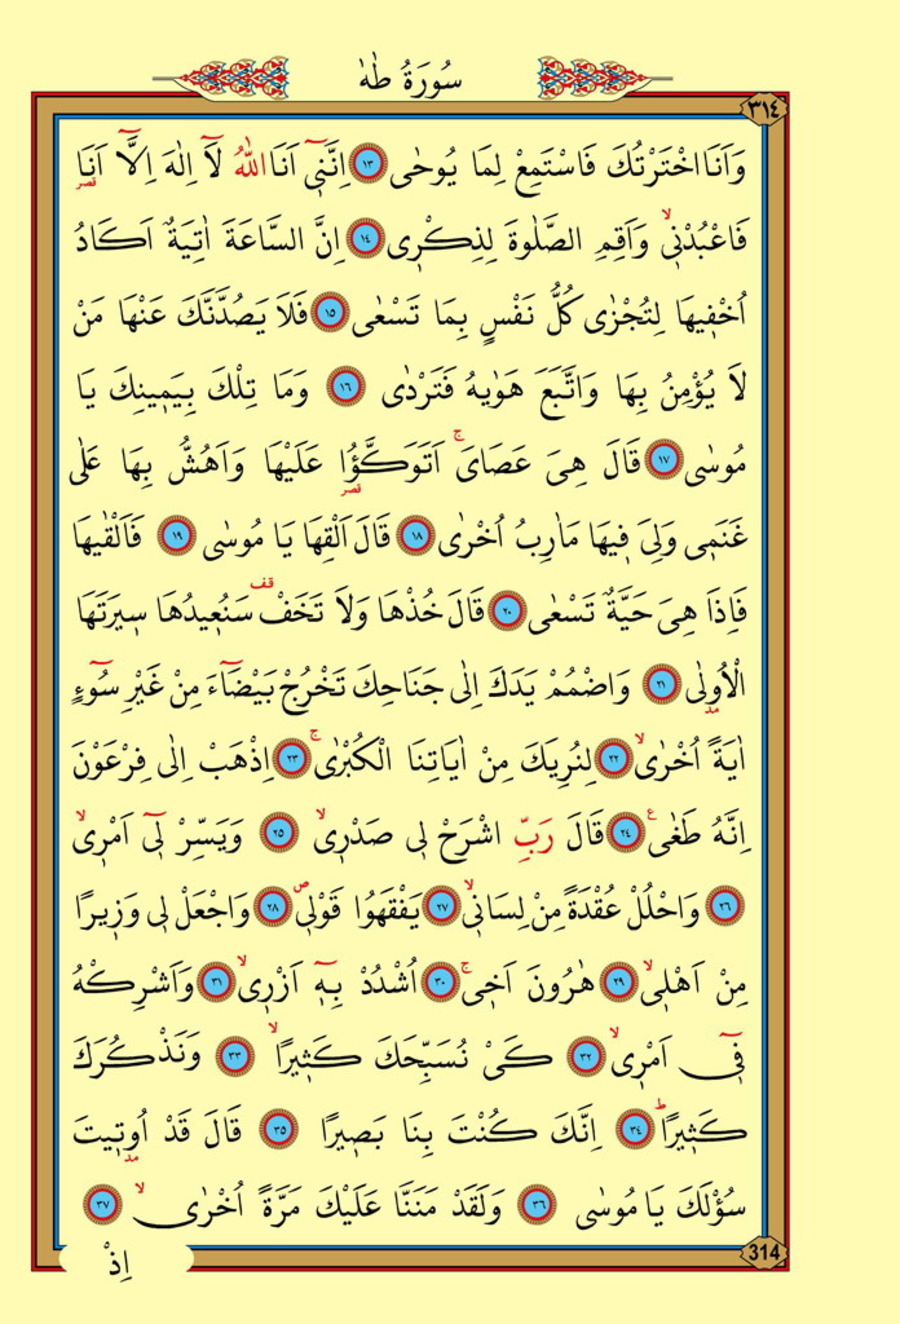 سُورَةُ طٰهٰ
٣١٤
وَاَنَا اخْتَرْتُكَ فَاسْتَمِعْ لِمَا يُوحٰى ﴿١٣﴾ اِنَّنٖٓي اَنَا اللّٰهُ لَٓا اِلٰهَ اِلَّٓا اَنَا۬ قصر
فَاعْبُدْنٖيۙ وَاَقِمِ الصَّلٰوةَ لِذِكْرٖى ﴿١٤﴾ اِنَّ السَّاعَةَ اٰتِيَةٌ اَكَادُ
اُخْفٖيهَا لِتُجْزٰى كُلُّ نَفْسٍ بِمَا تَسْعٰى ﴿١٥﴾ فَلَا يَصُدَّنَّكَ عَنْهَا مَنْ
لَا يُؤْمِنُ بِهَا وَاتَّبَعَ هَوٰيهُ فَتَرْدٰى ﴿١٦﴾ وَمَا تِلْكَ بِيَمٖينِكَ يَا
مُوسٰى ﴿١٧﴾ قَالَ هِىَ عَصَاىَۚ اَتَوَكَّؤُا قصر عَلَيْهَا وَاَهُشُّ بِهَا عَلٰى
غَنَمٖى وَلِىَ فٖيهَا مَاٰرِبُ اُخْرٰى ﴿١٨﴾ قَالَ اَلْقِهَا يَا مُوسٰى ﴿١٩﴾ فَاَلْقٰيهَا
فَاِذَا هِىَ حَيَّةٌ تَسْعٰى ﴿٢٠﴾ قَالَ خُذْهَا وَلَا تَخَفْ قف سَنُعٖيدُهَا سٖيرَتَهَا
الْاُو۫لٰى مد ﴿٢١﴾ وَاضْمُمْ يَدَكَ اِلٰى جَنَاحِكَ تَخْرُجْ بَيْضَٓاءَ مِنْ غَيْرِ سُٓوءٍ
اٰيَةً اُخْرٰىۙ ﴿٢٢﴾ لِنُرِيَكَ مِنْ اٰيَاتِنَا الْكُبْرٰىۚ ﴿٢٣﴾ اِذْهَبْ اِلٰى فِرْعَوْنَ
اِنَّهُ طَغٰى ع ﴿٢٤﴾ قَالَ رَبِّ اشْرَحْ لٖى صَدْرٖىۙ ﴿٢٥﴾ وَيَسِّرْ لٖٓى اَمْرٖىۙ
﴿٢٦﴾ وَاحْلُلْ عُقْدَةً مِنْ لِسَانٖىۙ ﴿٢٧﴾ يَفْقَهُوا قَوْلٖى ص ﴿٢٨﴾ وَاجْعَلْ لٖى وَزٖيرًا
مِنْ اَهْلٖىۙ ﴿٢٩﴾ هٰرُونَ اَخٖىۚ ﴿٣٠﴾ اُشْدُدْ بِهٖٓ اَزْرٖىۙ ﴿٣١﴾ وَاَشْرِكْهُ
فٖٓى اَمْرٖىۙ ﴿٣٢﴾ كَىْ نُسَبِّحَكَ كَثٖيرًاۙ ﴿٣٣﴾ وَنَذْكُرَكَ
كَثٖيرًاؕ ﴿٣٤﴾ اِنَّكَ كُنْتَ بِنَا بَصٖيرًا ﴿٣٥﴾ قَالَ قَدْ اُو۫تٖيتَ مد
سُؤْلَكَ يَا مُوسٰى ﴿٣٦﴾ وَلَقَدْ مَنَنَّا عَلَيْكَ مَرَّةً اُخْرٰىۙ ﴿٣٧﴾
314
اِذْ